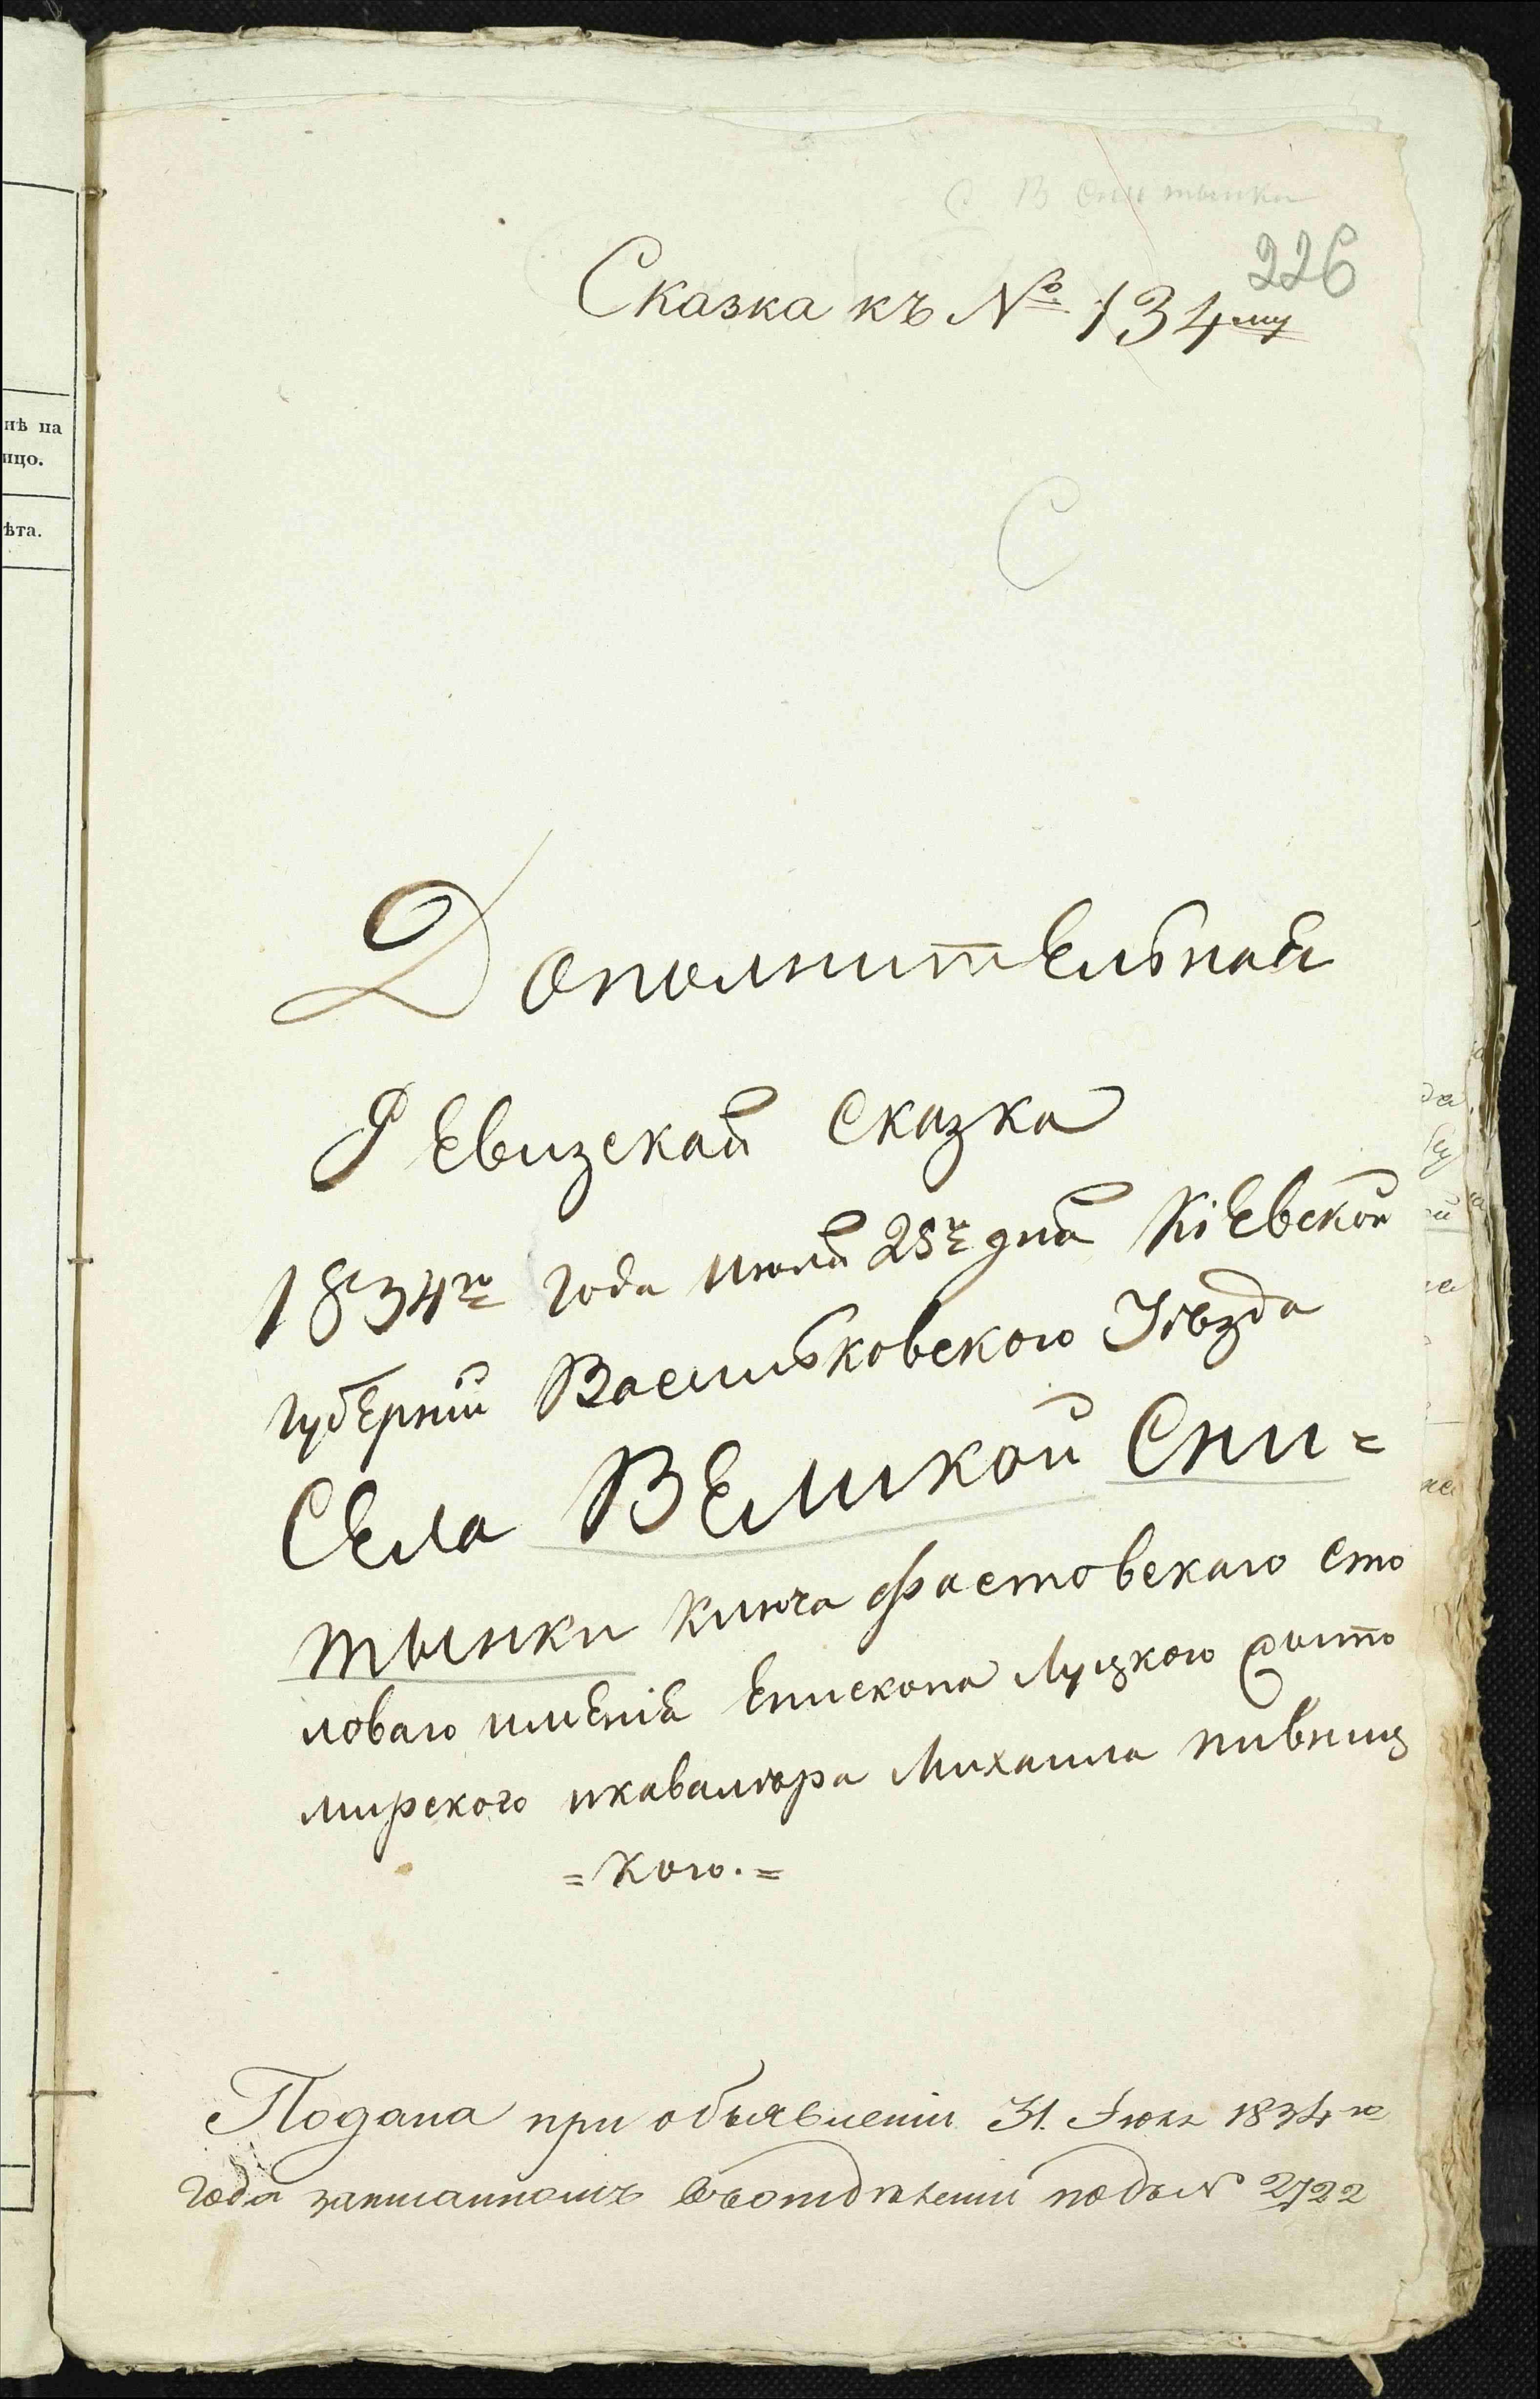 С В Снитынки
226
Сказка къ № 134му
С
Дополнительная
Ревизская Сказка
1834го года июля 25го дня Кіевской
губерніи Васильковского Уѣзда
Села Великой Сни=
тынки ключа фастовскаго сто
ловаго имѣнія Епископа Луцкого Жито
мирского икавалѣра Михаила пивниц
=кого.=
Подана при объявленіи 31. Іюля 1834го
года записанномъ въотдѣленіи подъ № 2722
нѣ на
ицо.
ѣта.